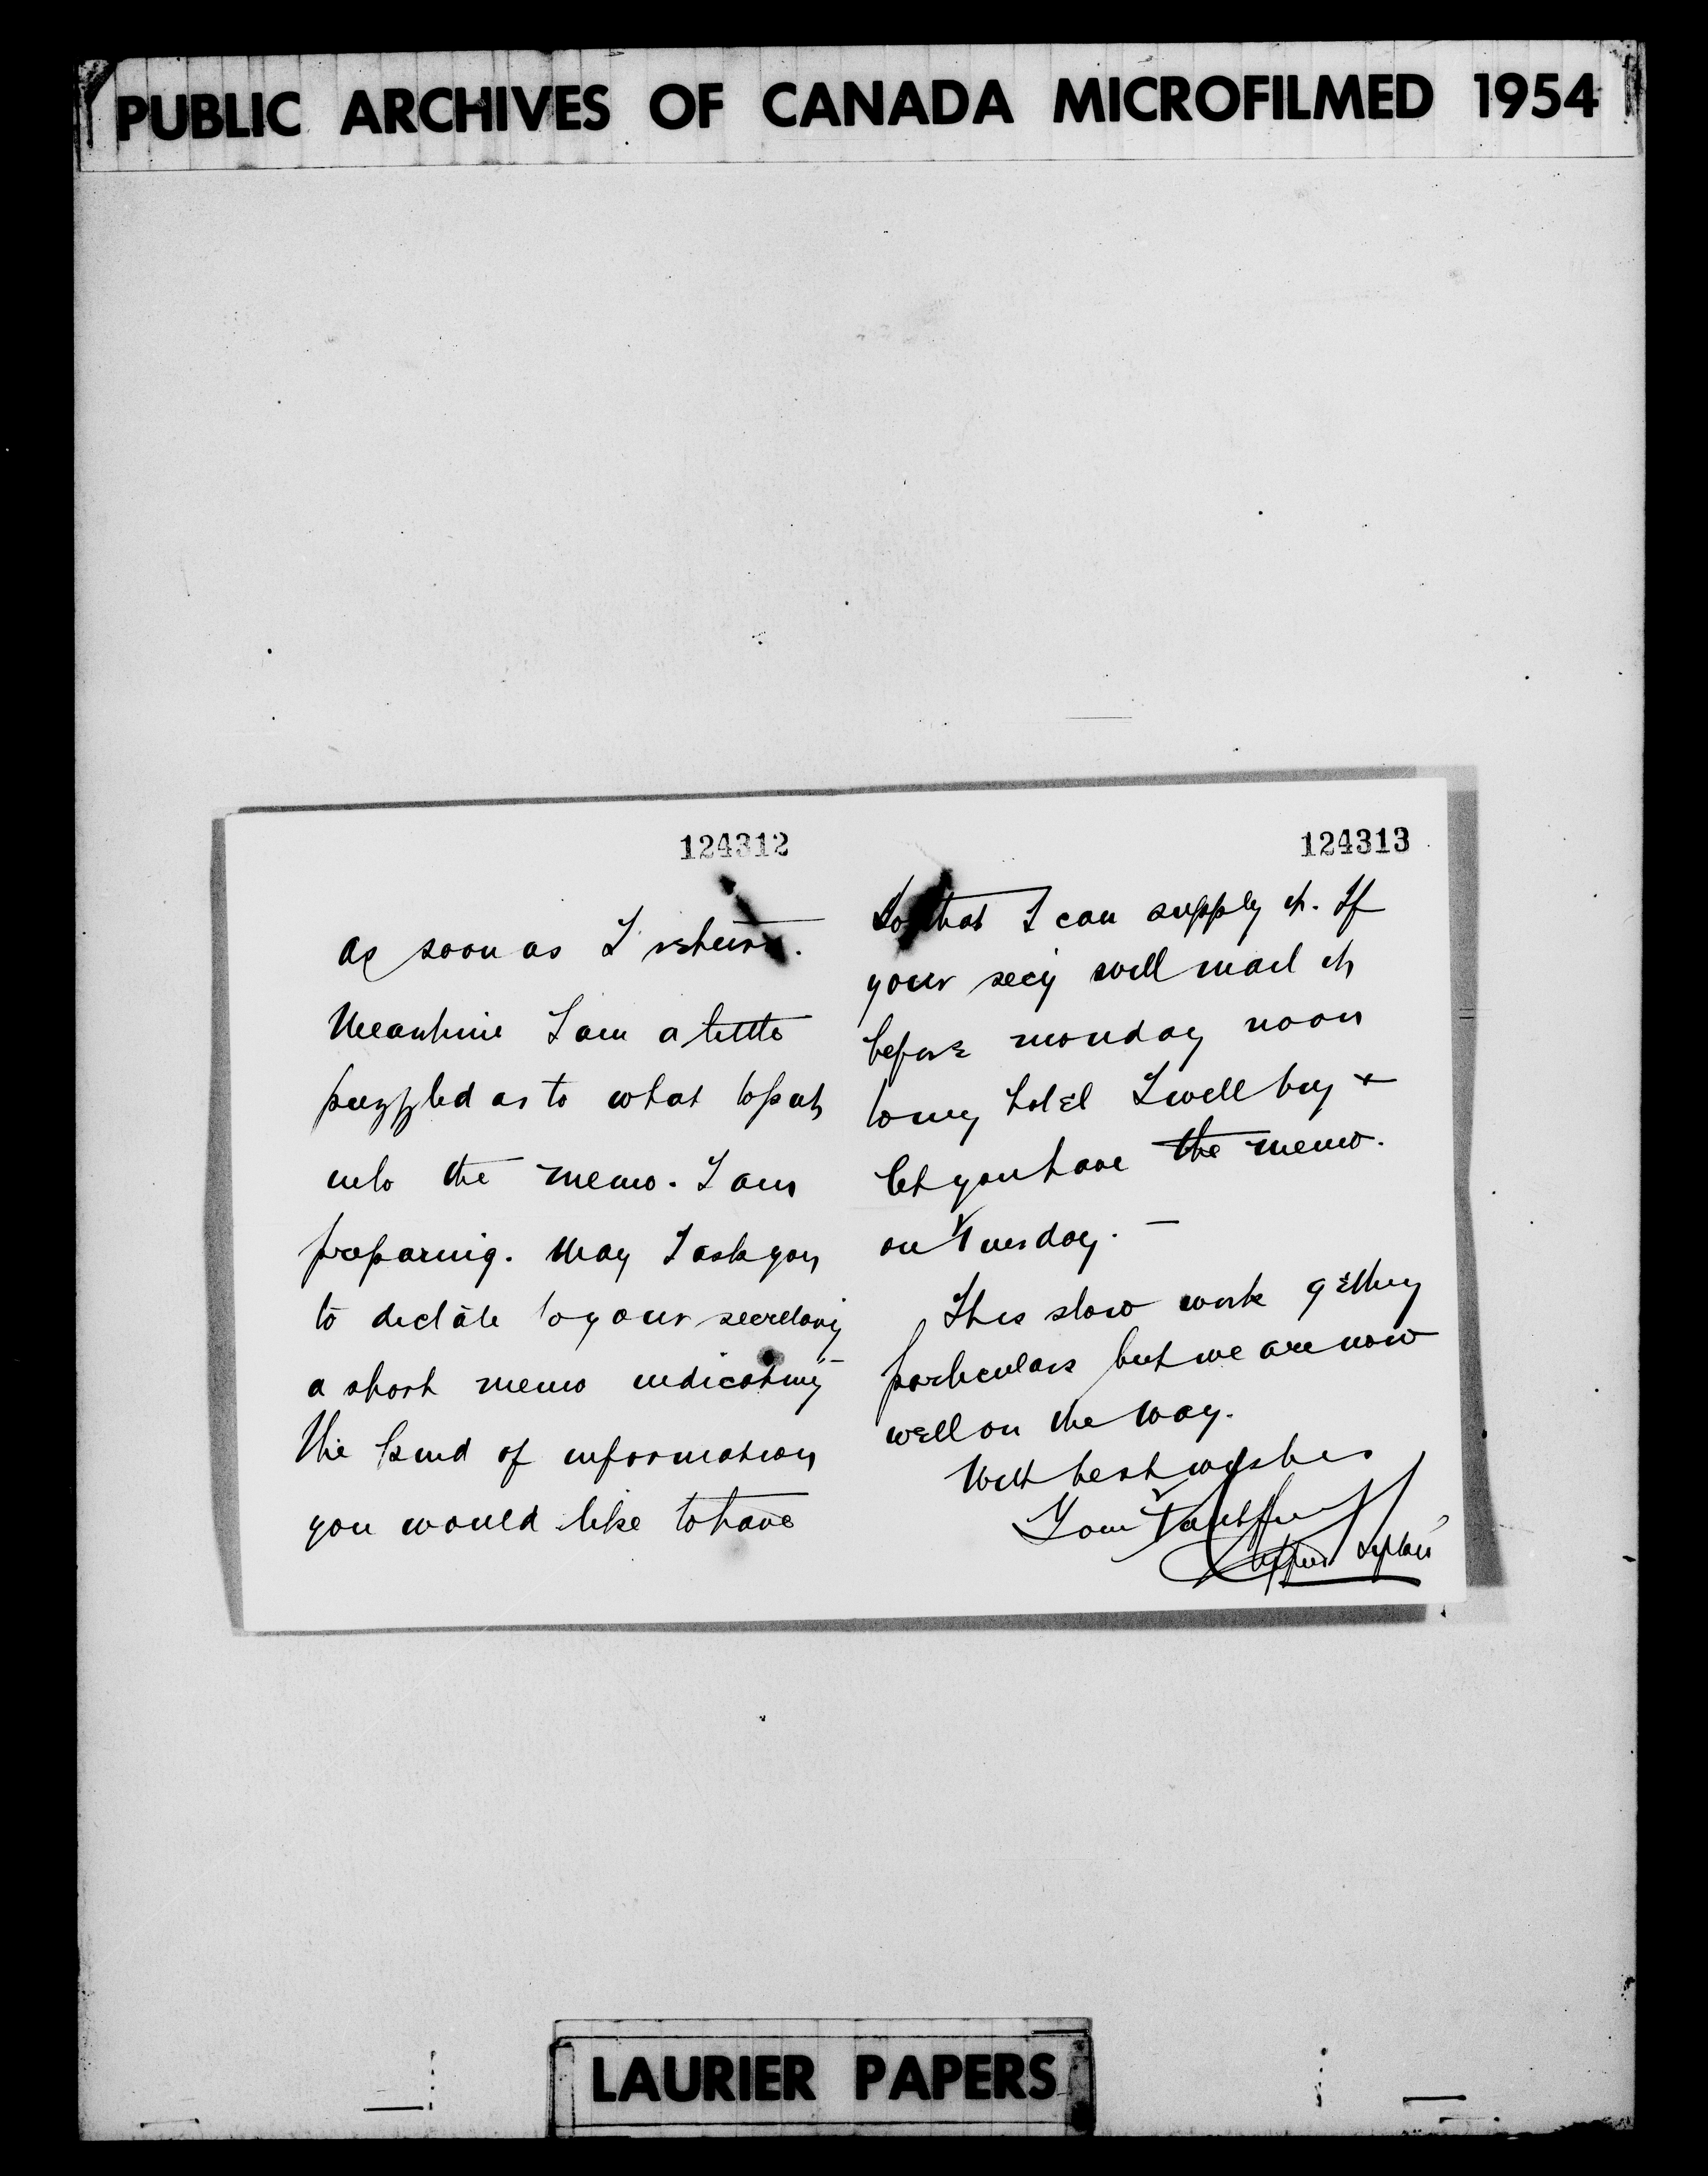 PUBLIC ARCHIVES OF CANADA MICROFILMED 1954
124312
as soon as I return.
Meantime I am a little
puzzled as to what to put
into the memo. I am
preparing. May I ask you
to dictate to your secretary
a short memo indicating
the kind of information
you would like to have
124313
So that I can supply it. If
your secy will mail it
before monday noon
to my hotel I will try &
let you have the memo.
on Tuesday. —
This slow work getting
particulars but we are now
well on the way.
With best wishes
Your faithfully
LAURIER PAPERS